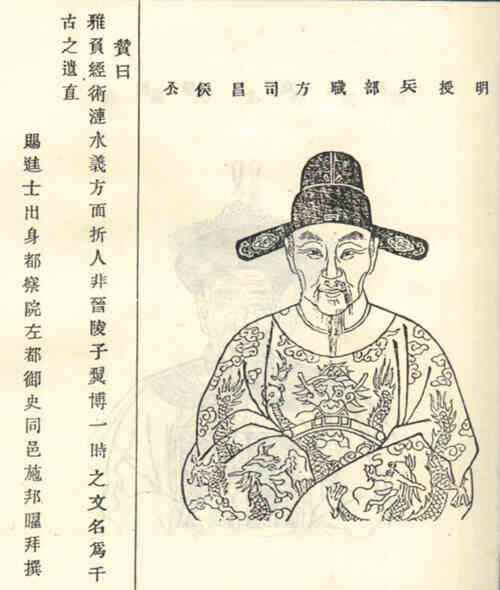 明授兵部職方司昌侯
贊曰
雅負經術漣水義方面折人非晉陵子翼博一時之文名爲千
古之遺直
賜進士出身都察院左都御史同邑施邦曜拜撰